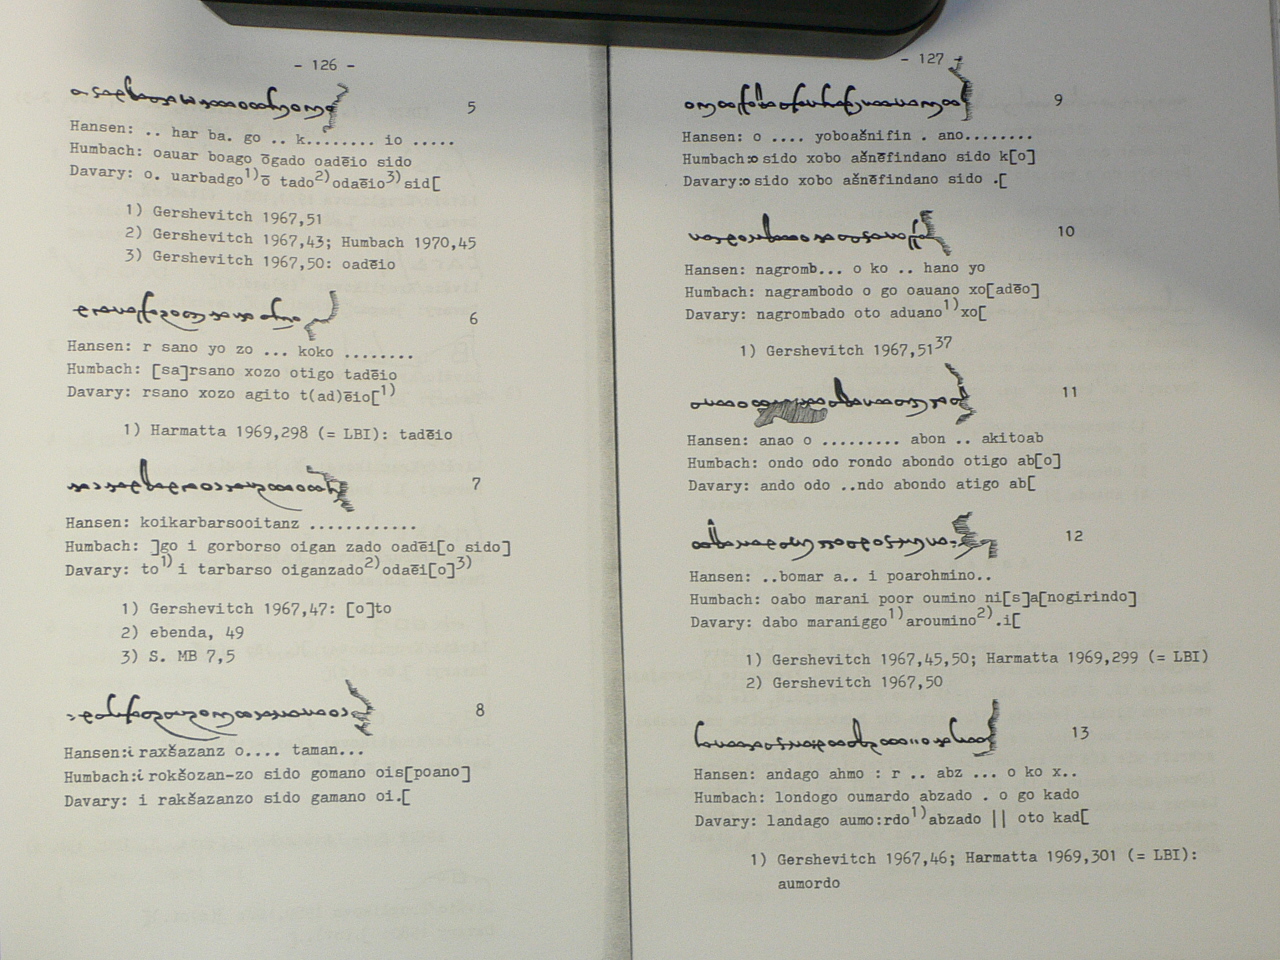 - 126 -
5
Hansen: .. har ba. go .. k........ io .....
Humbach: oauar boago ōgado oadēio sido
Davary: o. uarbadgo1)ō tado2)odaēio3)sid[
1) Gershevitch 1967,51
2) Gershevitch 1967,43; Humbach 1970,45
3) Gershevitch 1967,50: oadēio
6
Hansen: r sano yo zo ... koko ........
Humbach: [sa]rsano xozo otigo tadēio
Davary: rsano xozo agito t(ad)ēio[1)
1) Harmatta 1969,298 (= LBI): tadēio
7
Hansen: koikarbarsooitanz ............
Humbach: ]go i gorborso oigan zado oadēi[o sido]
Davary: to1) i tarbarso oiganzado2)odaēi[o]3)
1) Gershevitch 1967,47: [o]to
2) ebenda, 49
3) S. MB 7,5
8
Hansen:i raxšazanz o.... taman...
Humbach:i rokšozan-zo sido gomano ois[poano]
Davary: i rakšazanzo sido gamano oi.[
- 127 -
9
Hansen: o .... yoboašnifin . ano........
Humbach:o sido xobo ašnēfindano sido k[o]
Davary:o sido xobo ašnēfindano sido .[
10
Hansen: nagromb... o ko .. hano yo
Humbach: nagrambodo o go oauano xo[adēo]
Davary: nagrombado oto aduano1)xo[
1) Gershevitch 1967,5137
11
Hansen: anao o ......... abon .. akitoab
Humbach: ondo odo rondo abondo otigo ab[o]
Davary: ando odo ..ndo abondo atigo ab[
12
Hansen: ..bomar a.. i poarohmino..
Humbach: oabo marani poor oumino ni[s]a[nogirindo]
Davary: dabo maraniggo1)aroumino2).i[
1) Gershevitch 1967,45,50; Harmatta 1969,299 (= LBI)
2) Gershevitch 1967,50
13
Hansen: andago ahmo : r .. abz ... o ko x..
Humbach: londogo oumardo abzado . o go kado
Davary: landago aumo:rdo1)abzado || oto kad[
1) Gershevitch 1967,46; Harmatta 1969,301 (= LBI):
aumordo